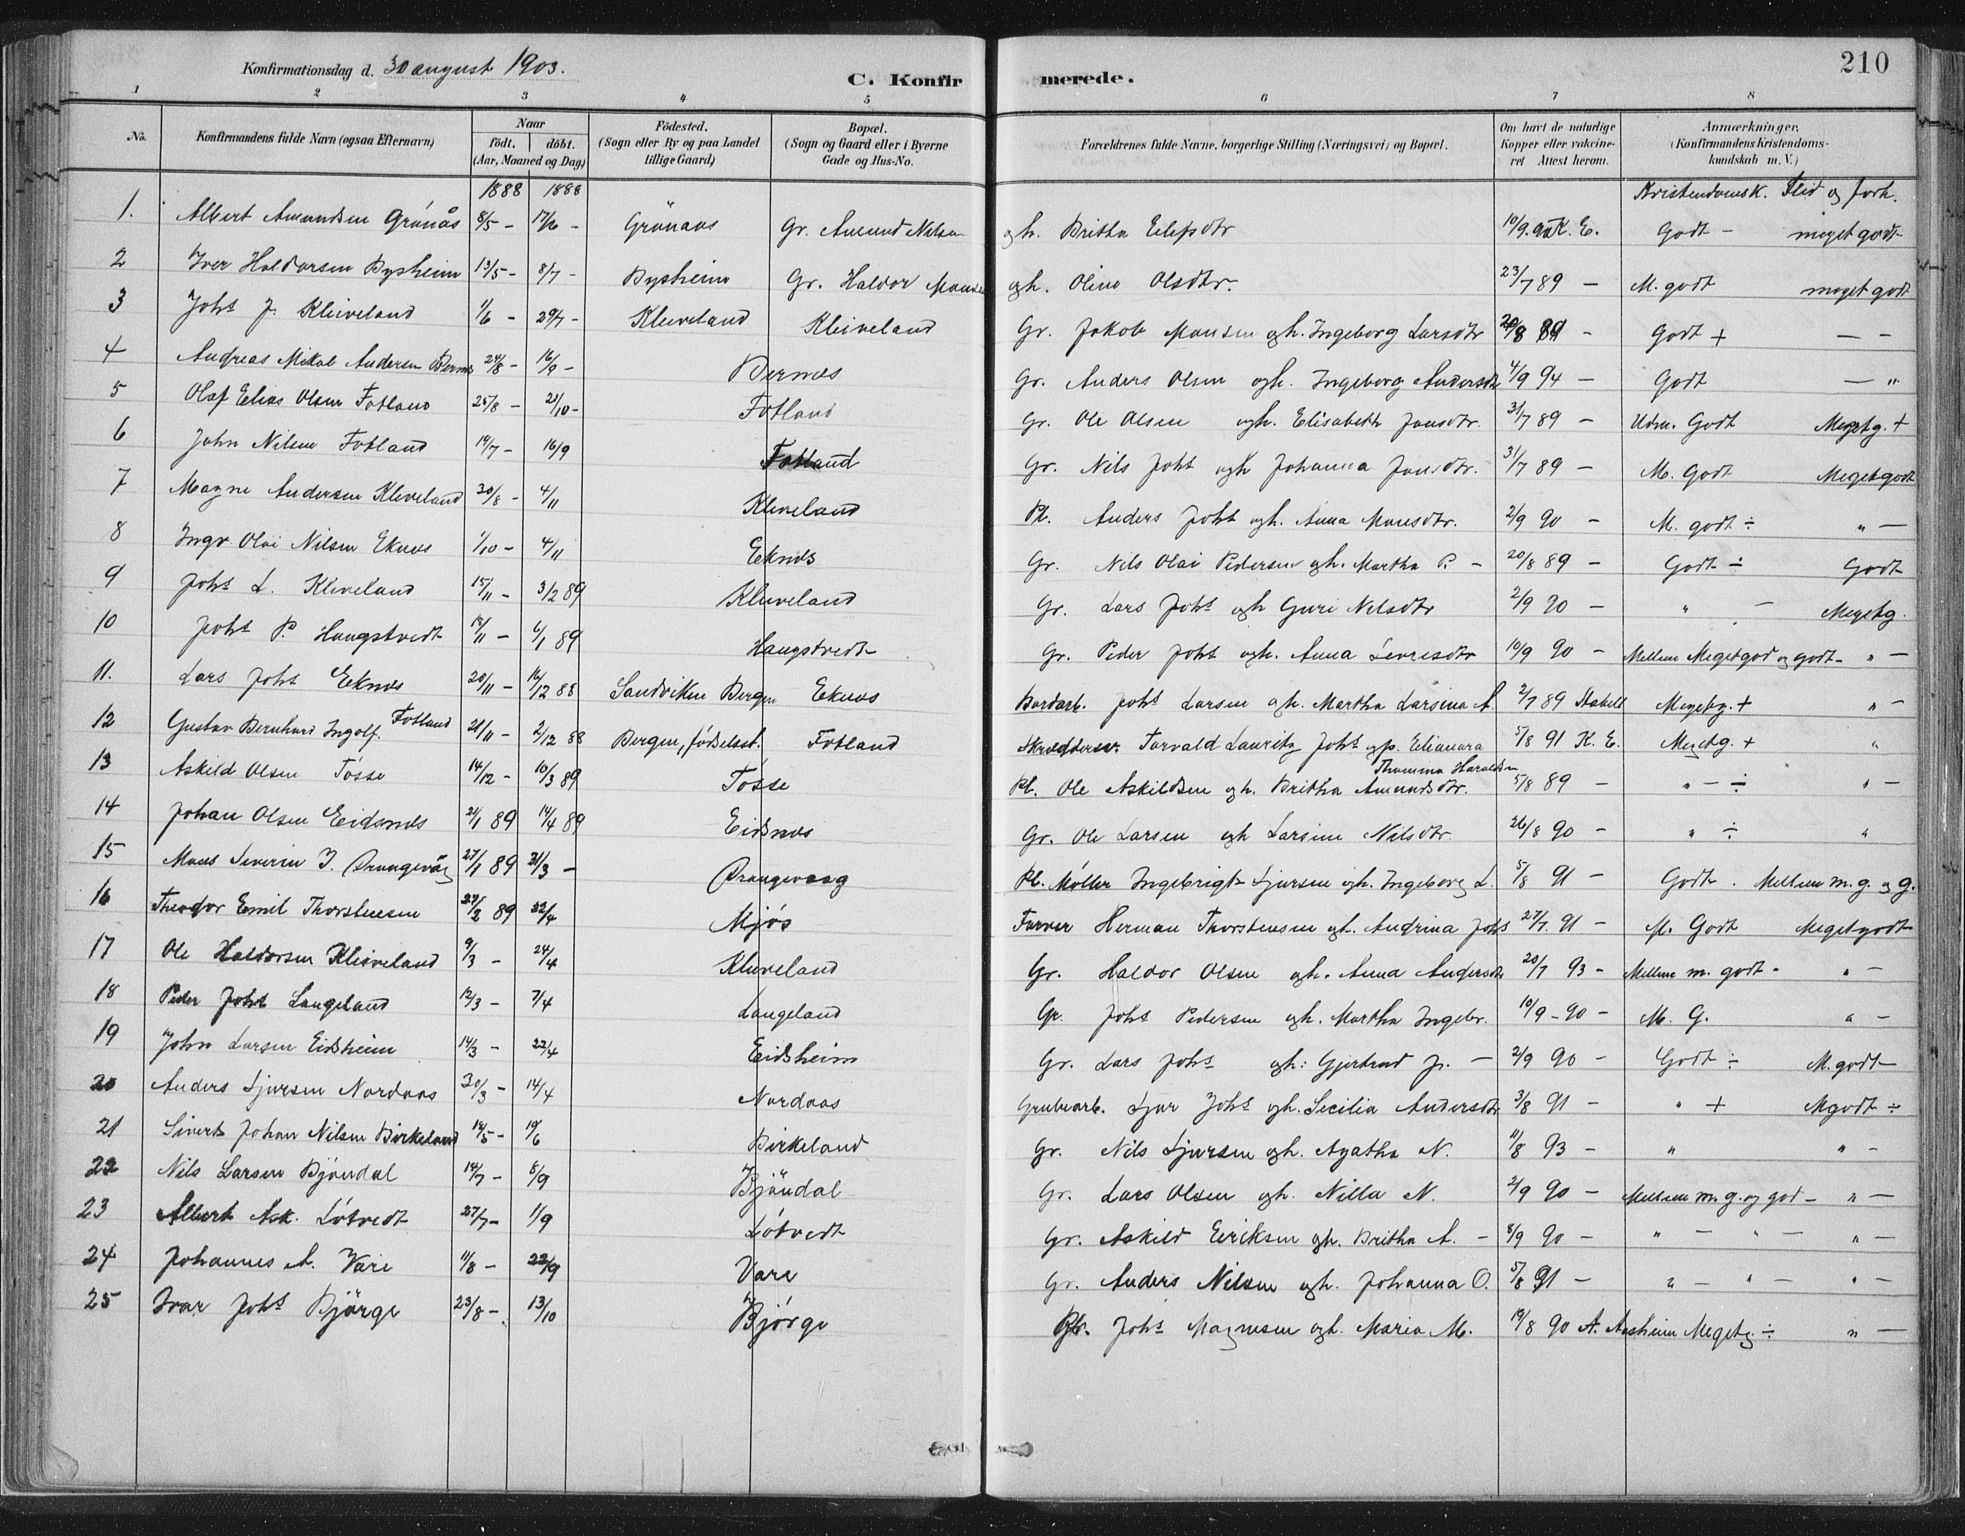 Konfirmationsdag d. 30 august 1903.
C. Konfirmerede.
210
1 2 3 4 5 6 7 8
No. Konfirmandens fulde Navn (ogsaa Efternavn) Naar født. døbt. (Aar, Maaned og Dag) Fødested. (Sogn eller By og paa Landet tillige Gaard) Bopæl. (Sogn og Gaard eller i Byerne Gade og Hus-No. Forældrenes fulde Navne, borgerlige Stilling (Næringsvei) og Bopæl. Om havt de naturlige Kopper eller vakcineret Attest herom. Anmærkninger. (Konfirmandens Kristendomskundskab m. V.)
1888 1888 Kristendomsk. Flid og Forh.
1. Albert Amundsen Grönås 8/5 - 17/6 - Grönaas Gr. Amund Nilsen og h. Britha Elefsdtr 10/9. 90 K. E. Godt - meget godt
2 Iver Haldorsen Bysheim 13/5 - 8/7 - Bysheim Gr. Haldor Monsen ogh. Oline Olsdtr. 23/7 89 - M. godt meget godt
3 Johs J. Kleiveland 1/6 - 29/7 - Kleiveland Kleiveland Gr. Jakob Monsen ogh. Ingeborg Larsdtr 20/8 89 - Godt + - -
4 Andreas Mikal Andersen Bernes 24/8 - 16/9 - Bernes Gr. Anders Olsen ogh. Ingeborg Andersdtr 4/9 94 - Godt - "
5 Olaf Elias Olsen Fotland 25/8 - 21/10 - Fotland Gr. Ole Olsen ogh. Elisabeth Jonsdtr. 31/7 89 - Udm. Godt Megetg. +
6 John Nilsen Fotland 14/7 - 16/9 Fotland Gr. Nils Johs ogh Johanna Jonsdtr. 31/7 89 - M. Godt Megetgodt
7 Magne Andersen Kleveland 30/8 - 4/11 Kleveland Pl. Anders Johs ogh. Anna Monsdtr. 2/9 90 - M. godt ÷ " -
8 Ingv. Olai Nilsen Eknes 1/10 - 4/11 Eknes Gr. Nils Olai Pedersen ogh. Martha P. - 20/8 89 - Godt ÷ Godt
9 Johs L. Kleveland 15/11 - 3/2 89 Kleveland Gr. Lars Johs ogh Guri Nilsdtr 2/9 90 - " - Megetg.
10 Johs P. Haugstvedt 12/11 - 6/1 89 Haugstvedt Gr. Peder Johs ogh. Anna Sevresdtr 10/9 90 - Mellem Megetgod og godt - " -
11. Lars Johs Eknes 20/11 - 16/12 88 Sandviken Bergen Eknes Bordarb. Johs Larsen ogh. Martha Larsina A. 2/7 89 Stabell Megetg. + " -
12 Gustav Bernhard Ingolf. Fotland 21/11 - 2/12 88 Bergen, fødselsst. Fotland Skrædderesv. Torvald Lauritz Johs og p. Elianora Thomine Haraldsen 5/8 91 K. E. Megetg. + "
13 Askild Olsen Tösse 14/12 - 10/3 89 Tösse Pl. Ole Askildsen ogh. Britha Amundsdtr. 5/8 89 - " - ÷ " -
14 Johan Olsen Eidsnes 21/1 89 14/4 89 Eidsnes Gr. Ole Larsen ogh Larsine Nilsdtr. 26/8 90 - " ÷ "
15 Mons Severin I. Drangevåg 27/1 89 31/3 - Drangevaag Pl. Møller Ingebrigt Sjursen ogh. Ingeborg L. 5/8 91 - Godt. Mellem m. g. og g.
16 Theodor Emil Thorstensen 27/2 89 22/4 Mjös Farver Herman Thorstensen ogh. Andrina Johs 27/7. 91 - M. Godt Megetgodt
17 Ole Haldorsen Kleiveland 9/3 - 24/4 Kleveland Gr. Haldor Olsen ogh. Anna Andersdtr 20/7 93 - Mellem m. godt - " -
18 Peder Johs Langeland 12/3 - 7/4 Langeland Gr. Johs Pedersen ogh. Martha Ingebr. 10/9 - 90 - M. G. " -
19 John Larsen Eidsheim 14/3 - 22/4 Eidsheim Gr. Lars Johs ogh: Gjertrud J. - 2/9 90 - Godt ÷ M. godt -
20 Anders Sjursen Nordaas 30/3 - 14/4 Nordaas Grubearb. Sjur Johs ogh. Secilia Andersdtr 3/8 91 - " + Mgodt ÷
21 Sivert Johan Nilsen Birkeland 14/5 - 10/6 Birkeland Gr. Nils Sjursen ogh. Agatha N. 11/8 93 - " " -
22 Nils Larsen Bjöndal 14/7 - 8/9 Bjöndal Gr. Lars Olsen ogh. Nilla N. 2/9 90 - Mellem m. g. og god - " -
23 Albert Ask. Lötvedt 27/7 - 1/9 Lötvedt Gr. Askild Eriksen ogh. Britha A. - 8/9 90 - " - " - " -
24 Johannes A. Väre 11/8 - 22/9 Vare Gr. Anders Nilsen ogh. Johanna O. 5/8 91 - " - " - " -
25 Ivar Johs Bjørge 23/8 - 13/10 Bjørge Pl. Johs Magnesen ogh. Maria M. 19/8 90 A. Aasheim Megetg ÷ " -